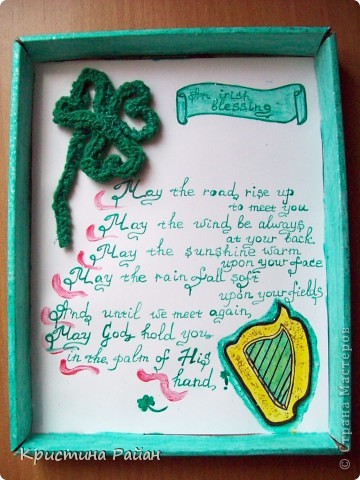 An irish
blessing
May the road rise up
to meet you
May the wind be always
at your back.
May the sunshine warm
upon your face
May the rain fall soft
upon your fields
And until we meet again,
May God hold you
in the palm of His
hand!
Кристина Райан
© Страна Мастеров